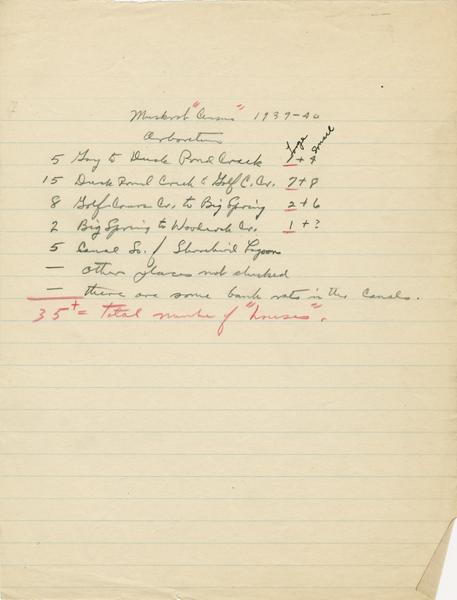 Muskrat "Census" 1939-40
Arboretum
large small
5 Gay to Duck Pond Creek 1 + 4
15 Duck Pond Creek to Golf C. Cr. 7 + 8
8 Golf Course Cr. to Big Spring 2 + 6
2 Big Spring to Wodark Cr. 1 + ?
5 Canal So. of Shorebird Lagoon
— other places not checked
— there are some bank rats in the Canals.
35+ = Total number of "houses".